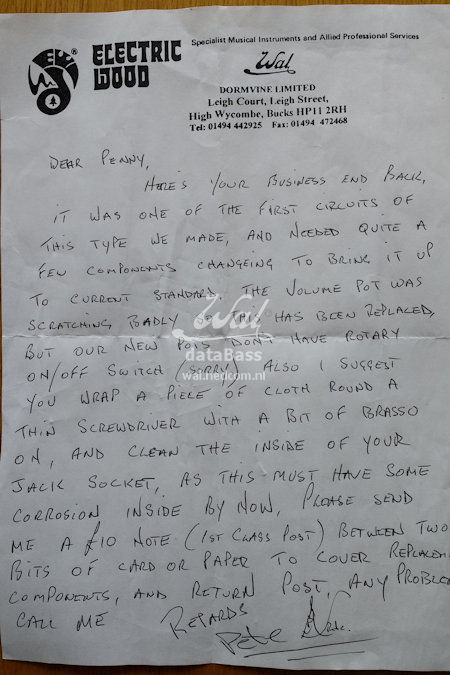 Specialist Musical Instruments and Allied Professional Services
ELECTRIC
WOOD
®
Wal
DORMVINE LIMITED
Leigh Court, Leigh Street,
High Wycombe, Bucks HP11 2RH
Tel: 01494 442925 Fax: 01494 472468
DEAR PENNY,
HERE'S YOUR BUSINESS END BACK,
IT WAS ONE OF THE FIRST CIRCUITS OF
THIS TYPE WE MADE, AND NEEDED QUITE A
FEW COMPONENTS CHANGEING TO BRING IT UP
TO CURRENT STANDARD. THE VOLUME POT WAS
SCRATCHING BADLY SO THIS HAS BEEN REPLACED,
BUT OUR NEW POTS DON'T HAVE ROTARY
ON/OFF SWITCH (SORRY) ALSO I SUGGEST
YOU WRAP A PIECE OF CLOTH ROUND A
THIN SCREWDRIVER WITH A BIT OF BRASSO
ON, AND CLEAN THE INSIDE OF YOUR
JACK SOCKET, AS THIS MUST HAVE SOME
CORROSION INSIDE BY NOW, PLEASE SEND
ME A £10 NOTE (1ST CLASS POST) BETWEEN TWO
BITS OF CARD OR PAPER TO COVER REPLACEM
COMPONENTS, AND RETURN POST, ANY PROBLEM
CALL ME
REGARDS
Pete
Wal
dataBass
wal.nedcom.nl